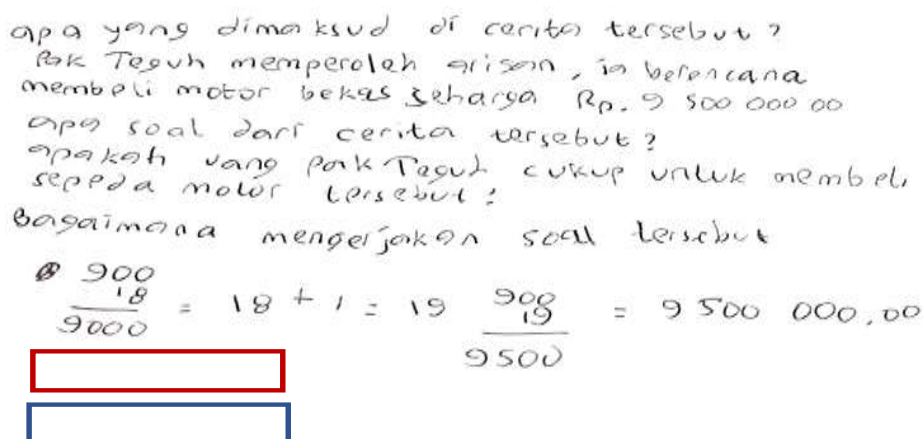 apa yang dimaksud di cerita tersebut?
Pak Teguh memperoleh arisan, ia berencana
membeli motor bekas seharga Rp. 9 500 000 00
apa soal dari cerita tersebut?
apakah uang Pak Teguh cukup untuk membeli
sepeda motor tersebut?
Bagaimana mengerjakan soal tersebut
900
18
9000
= 18 + 1 = 19
900
19
9500
= 9 500 000,00